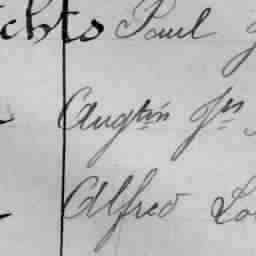 chts Paul
Augtin Jns
Alfred Lo